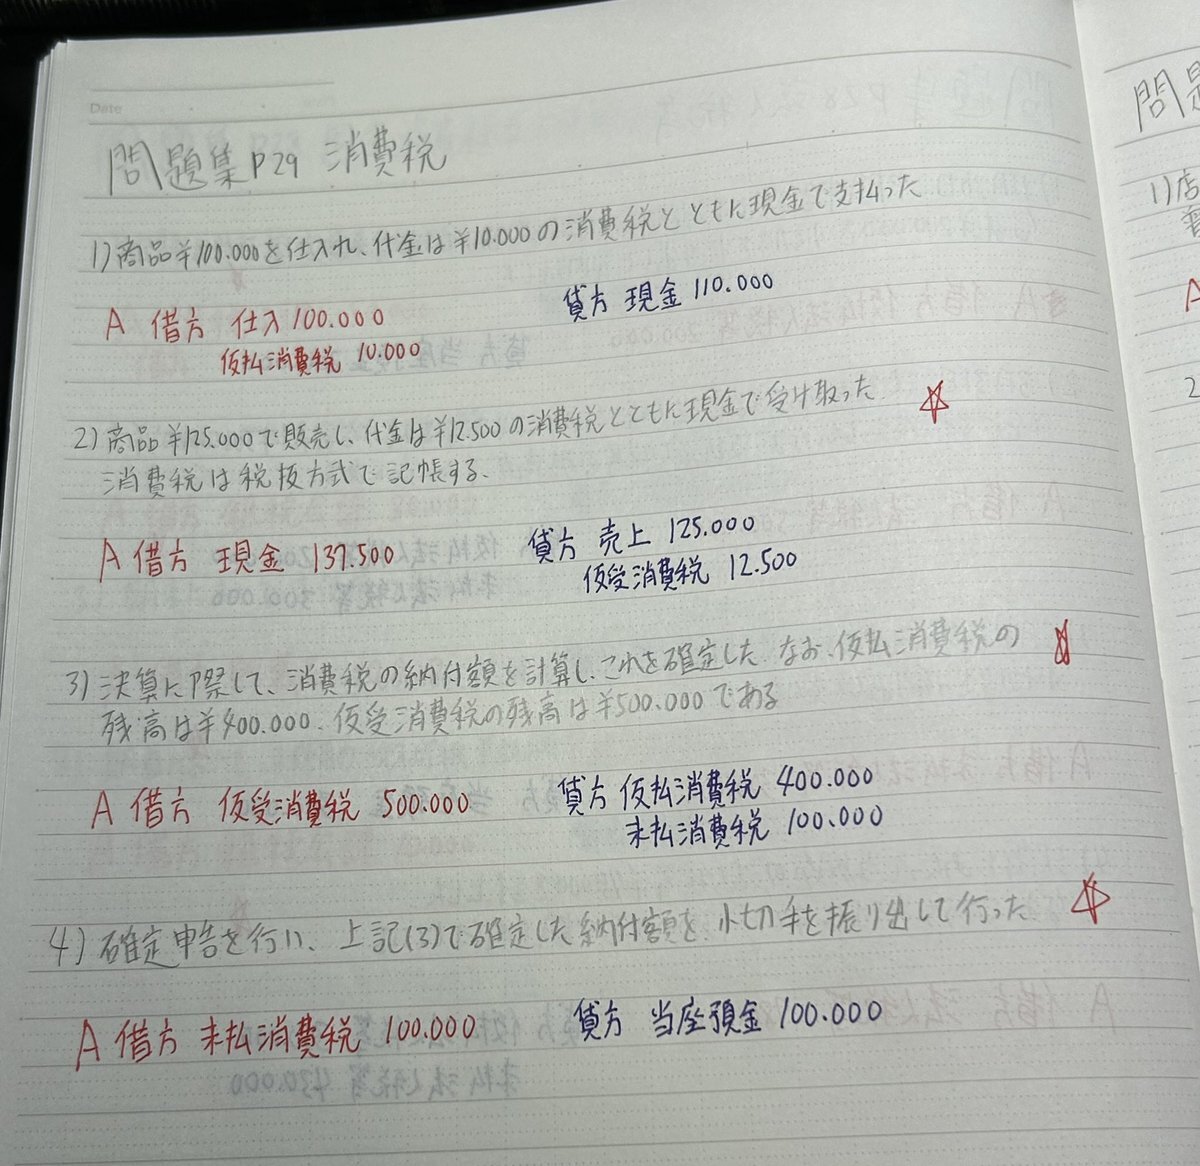 Date
問題集P29 消費税
1)商品¥100.000を仕入れ、代金は¥10.000の消費税とともに現金で支払った
A 借方 仕入 100.000 貸方 現金 110.000
仮払消費税 10.000
2)商品¥125.000で販売し、代金は¥12.500の消費税とともに現金で受け取った
消費税は税抜方式で記帳する、
A 借方 現金 137.500 貸方 売上 125.000
仮受消費税 12.500
3)決算に際して、消費税の納付額を計算し、これを確定した、なお、仮払消費税の
残高は¥400.000、仮受消費税の残高は¥500.000である
A 借方 仮受消費税 500.000 貸方 仮払消費税 400.000
未払消費税 100.000
4)確定申告を行い、上記(3)で確定した納付額を、小切手を振り出して行った
A 借方 未払消費税 100.000 貸方 当座預金 100.000
問題
1)店
A
2